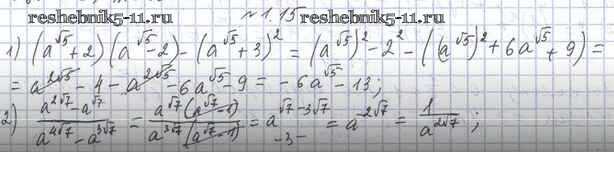 reshebnik5-11.ru № 1.15 reshebnik5-11.ru
1) (a^√5 + 2)(a^√5 - 2) - (a^√5 + 3)² = (a^√5)² - 2² - ((a^√5)² + 6a^√5 + 9) =
= a^2√5 - 4 - a^2√5 - 6a^√5 - 9 = - 6a^√5 - 13;
2) (a^2√7 - a^√7)/(a^4√7 - a^3√7) = (a^√7(a^√7 - 1))/(a^3√7(a^√7 - 1)) = a^√7 - 3√7 = a^-2√7 = 1/a^2√7;
-3-